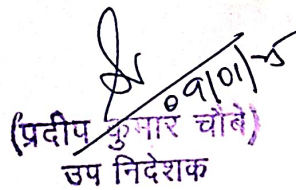 09/01/25
(प्रदीप कुमार चौबे)
उप निदेशक